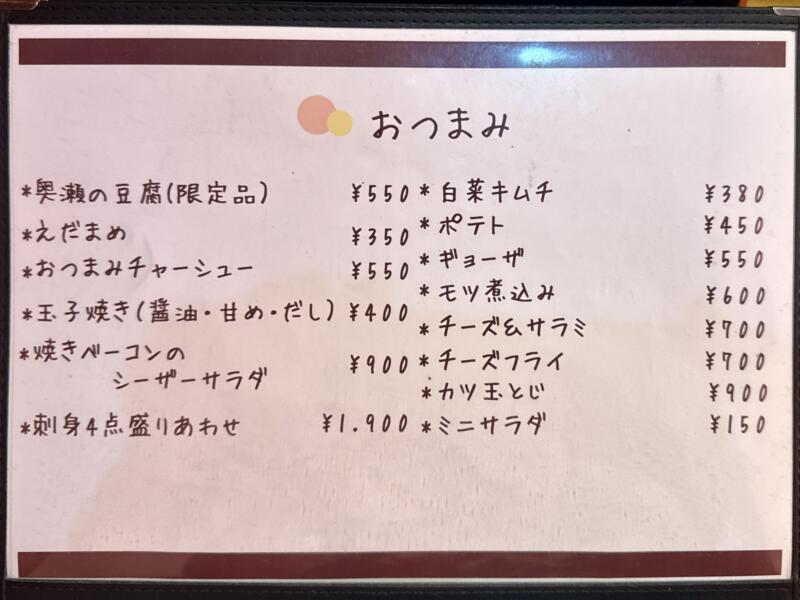 おつまみ
*奥瀬の豆腐(限定品) ¥550
*えだまめ ¥350
*おつまみチャーシュー ¥550
*玉子焼き(醤油・甘め・だし) ¥400
*焼きベーコンの
シーザーサラダ ¥900
*刺身4点盛りあわせ ¥1.900
*白菜キムチ ¥380
*ポテト ¥450
*ギョーザ ¥550
*モツ煮込み ¥600
*チーズ&サラミ ¥700
*チーズフライ ¥700
*カツ玉とじ ¥900
*ミニサラダ ¥150